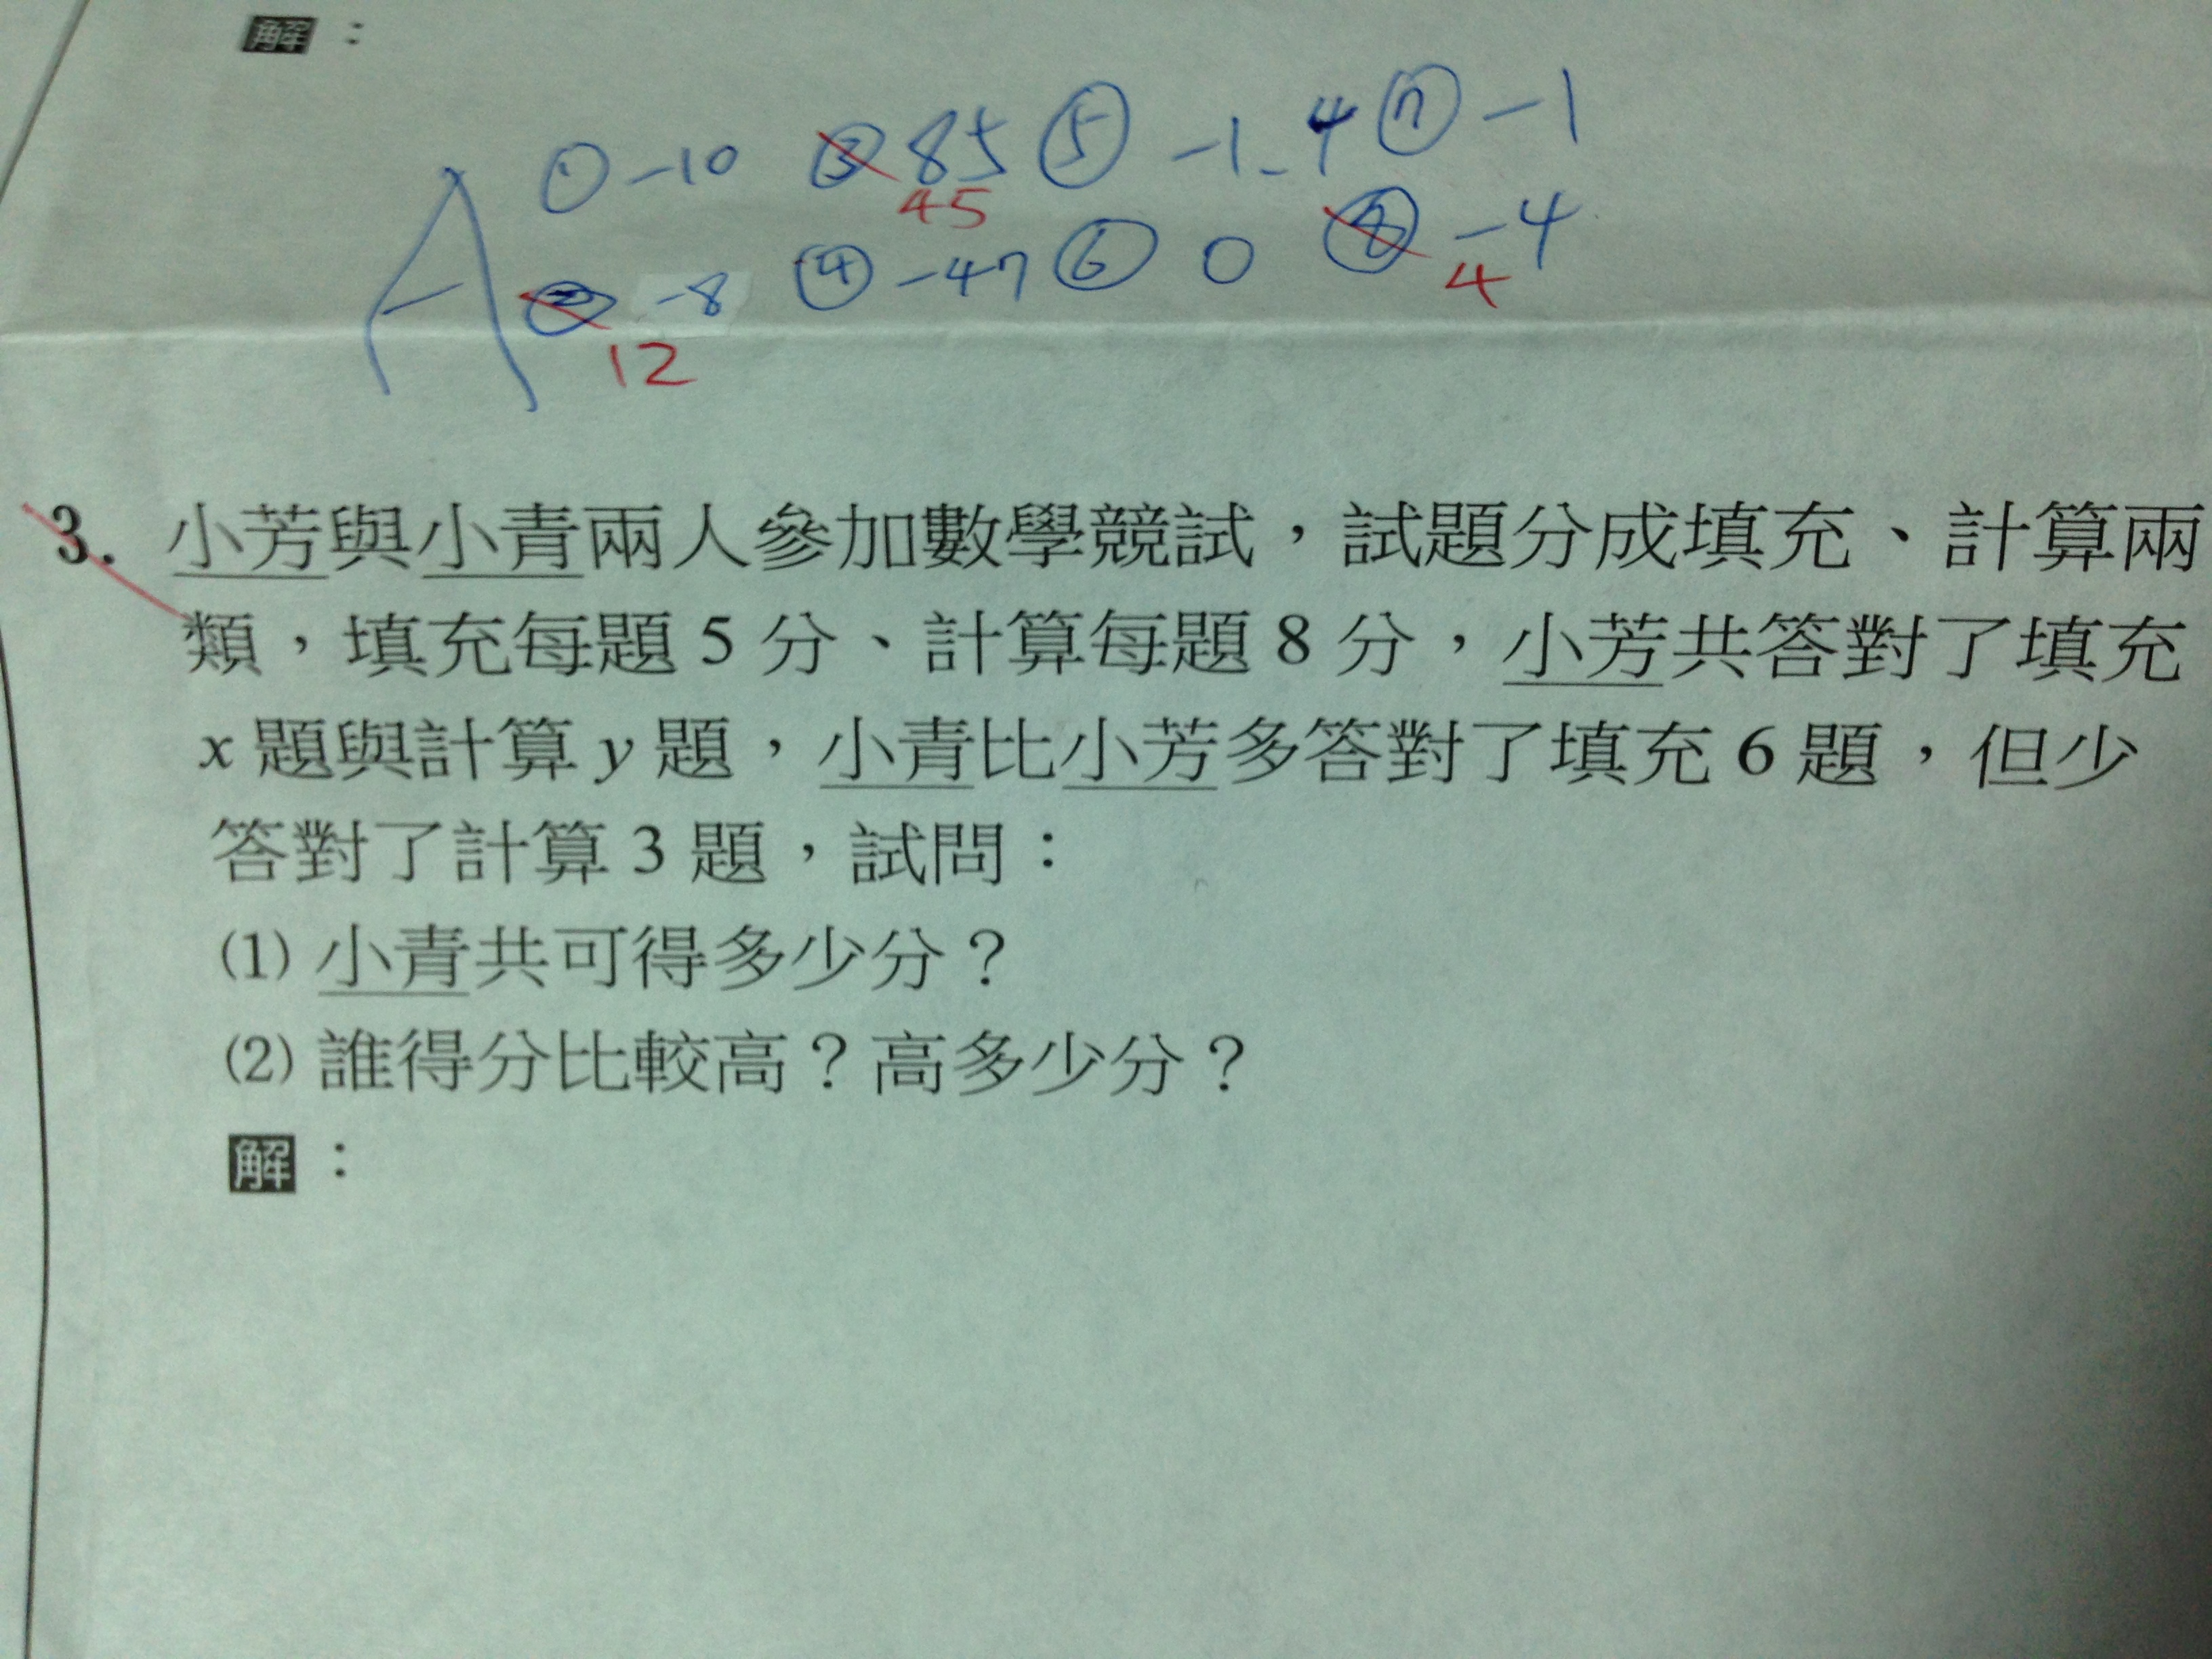 解：
① -10 ③ 85 ⑤ -1.4 ⑦ -1
45
A ② -8 ④ -47 ⑥ 0 ⑧ -4
12 4
3. 小芳與小青兩人參加數學競試，試題分成填充、計算兩
類，填充每題 5 分、計算每題 8 分，小芳共答對了填充
x 題與計算 y 題，小青比小芳多答對了填充 6 題，但少
答對了計算 3 題，試問：
(1) 小青共可得多少分？
(2) 誰得分比較高？高多少分？
解：